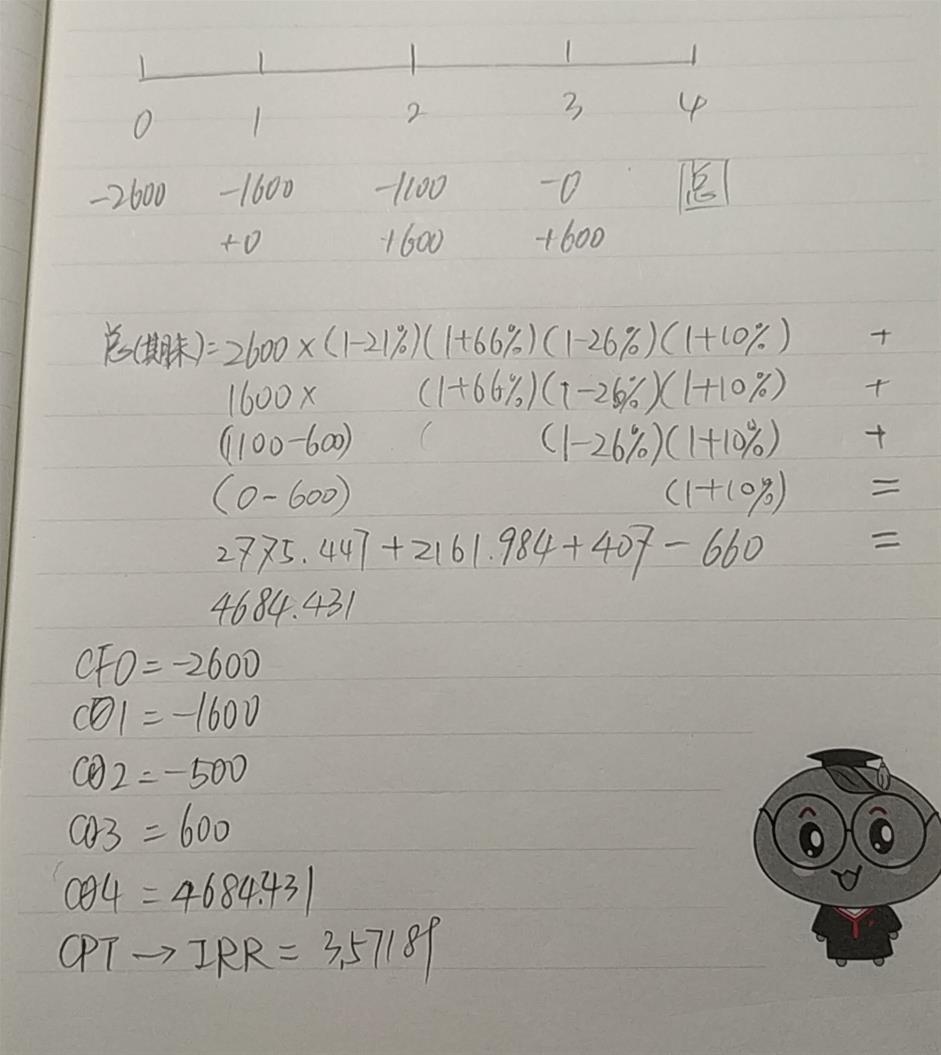 0 1 2 3 4
-2600 -1600 -1100 -0 总
+0 +600 +600
总(期末)=2600×(1-21%)(1+66%)(1-26%)(1+10%) +
1600× (1+66%)(1-26%)(1+10%) +
(1100-600) ( (1-26%)(1+10%) +
(0-600) (1+10%) =
2775.447+2161.984+407-660 =
4684.431
CF0=-2600
C01=-1600
C02=-500
C03=600
C04=4684.431
CPT→IRR=3.5718